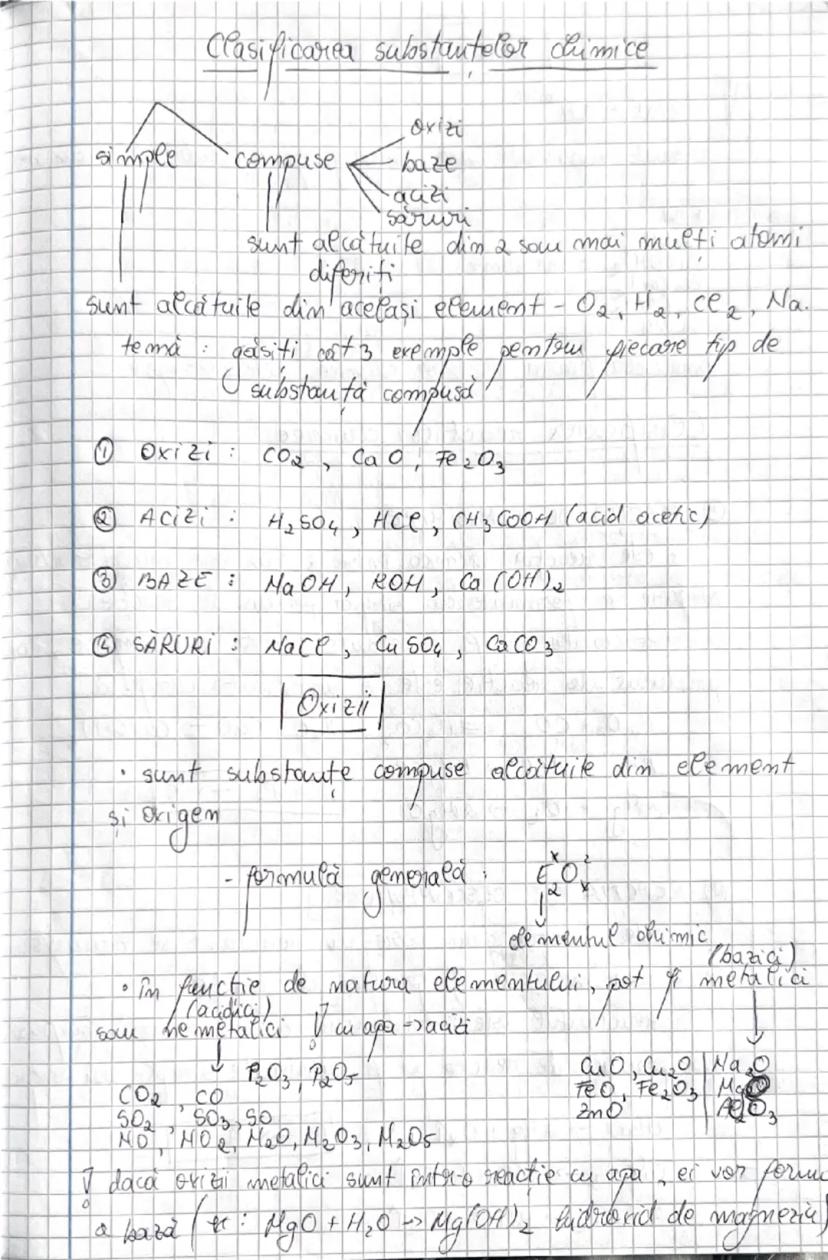 Clasificarea substanțelor chimice
oxizi
simple compuse baze
acizi
săruri
sunt alcătuite din 2 sau mai mulți atomi
diferiți
sunt alcătuite din același element - O₂, H₂, Cl₂, Na.
temă : găsiți cât 3 exemple pentru fiecare tip de
substanță compusă
① Oxizi : CO₂ , CaO, Fe₂O₃
② ACIZI : H₂SO₄ , HCl , CH₃COOH (acid acetic)
③ BAZE : NaOH, KOH, Ca(OH)₂
④ SĂRURI : NaCl , CuSO₄ , CaCO₃
Oxizii
• sunt substanțe compuse alcătuite din element
și oxigen
- formulă generală : E₂ˣOₓ²
elementul chimic
(bazici)
• în funcție de natura elementului, pot fi metalici
(acidici)
sau nemetalici ! cu apa → acizi
P₂O₃, P₂O₅ CuO, Cu₂O | Na₂O
CO₂ , CO FeO, Fe₂O₃ | MgO
SO₂ , SO₃, SO ZnO | Al₂O₃
NO , NO₂, N₂O, N₂O₃, N₂O₅
! dacă oxizii metalici sunt într-o reacție cu apa, ei vor forma
o bază (ex: MgO + H₂O → Mg(OH)₂ hidroxid de magneziu)